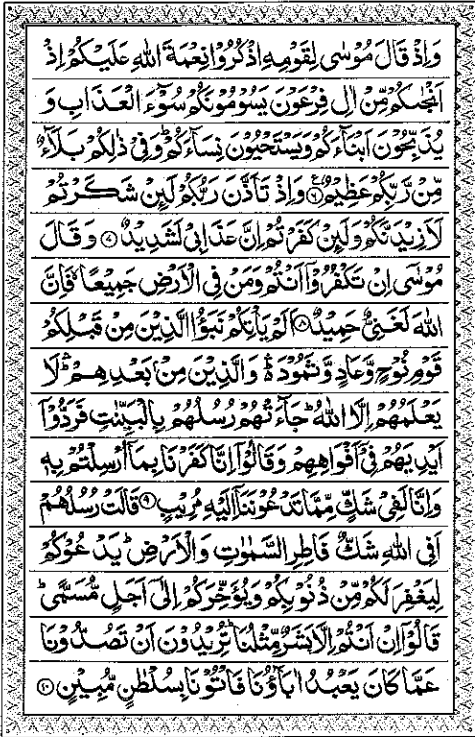 وَاِذْ قَالَ مُوْسٰى لِقَوْمِهِ اذْكُرُوْا نِعْمَةَ اللّٰهِ عَلَيْكُمْ اِذْ
اَنْجٰىكُمْ مِّنْ اٰلِ فِرْعَوْنَ يَسُوْمُوْنَكُمْ سُوْٓءَ الْعَذَابِ وَ
يُذَبِّحُوْنَ اَبْنَآءَكُمْ وَيَسْتَحْيُوْنَ نِسَآءَكُمْ ؕ وَفِيْ ذٰلِكُمْ بَلَآءٌ
مِّنْ رَّبِّكُمْ عَظِيْمٌ ۟ع ﴿۶﴾ وَاِذْ تَاَذَّنَ رَبُّكُمْ لَئِنْ شَكَرْتُمْ
لَاَزِيْدَنَّكُمْ وَلَئِنْ كَفَرْتُمْ اِنَّ عَذَابِيْ لَشَدِيْدٌ ﴿۷﴾ وَقَالَ
مُوْسٰٓى اِنْ تَكْفُرُوْٓا اَنْتُمْ وَمَنْ فِى الْاَرْضِ جَمِيْعًا ۙ فَاِنَّ
اللّٰهَ لَغَنِيٌّ حَمِيْدٌ ﴿۸﴾ اَلَمْ يَاْتِكُمْ نَبَؤُا الَّذِيْنَ مِنْ قَبْلِكُمْ
قَوْمِ نُوْحٍ وَّعَادٍ وَّثَمُوْدَ ۛؕ وَالَّذِيْنَ مِنْۢ بَعْدِهِمْ ۛؕ لَا
يَعْلَمُهُمْ اِلَّا اللّٰهُ ؕ جَآءَتْهُمْ رُسُلُهُمْ بِالْبَيِّنٰتِ فَرَدُّوْٓا
اَيْدِيَهُمْ فِيْٓ اَفْوَاهِهِمْ وَقَالُوْٓا اِنَّا كَفَرْنَا بِمَآ اُرْسِلْتُمْ بِهٖ
وَاِنَّا لَفِيْ شَكٍّ مِّمَّا تَدْعُوْنَنَآ اِلَيْهِ مُرِيْبٍ ﴿۹﴾ قَالَتْ رُسُلُهُمْ
اَفِى اللّٰهِ شَكٌّ فَاطِرِ السَّمٰوٰتِ وَالْاَرْضِ ؕ يَدْعُوْكُمْ
لِيَغْفِرَ لَكُمْ مِّنْ ذُنُوْبِكُمْ وَيُؤَخِّرَكُمْ اِلٰٓى اَجَلٍ مُّسَمًّى ؕ
قَالُوْٓا اِنْ اَنْتُمْ اِلَّا بَشَرٌ مِّثْلُنَا ؕ تُرِيْدُوْنَ اَنْ تَصُدُّوْنَا
عَمَّا كَانَ يَعْبُدُ اٰبَآؤُنَا فَاْتُوْنَا بِسُلْطٰنٍ مُّبِيْنٍ ﴿۱۰﴾